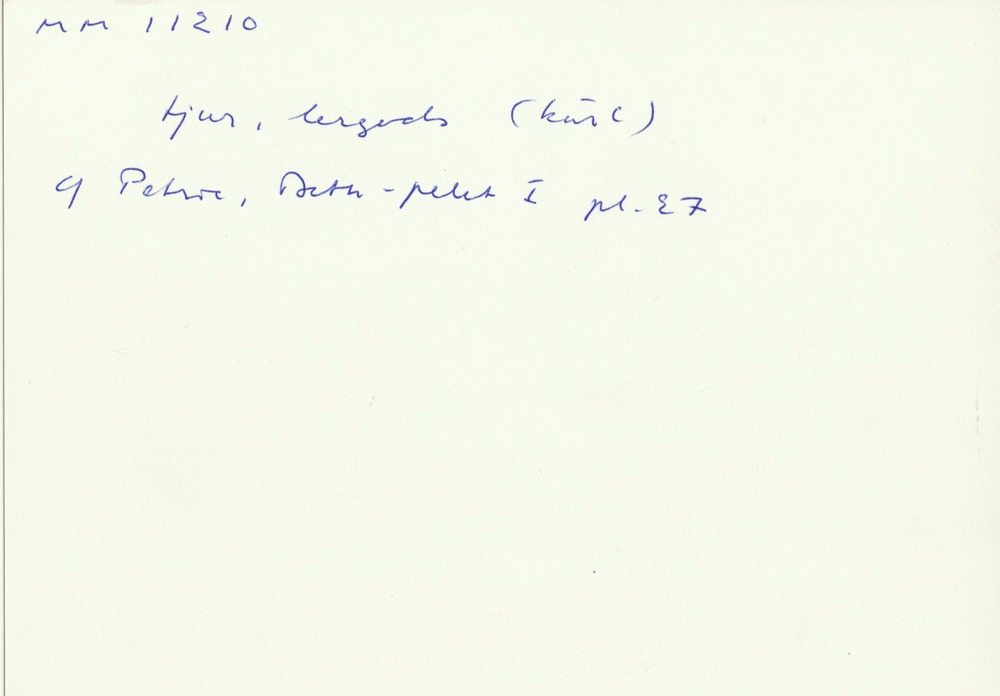 MM 11210
tjur, lergods (kärl)
cf Petrie, Beth-pelet I pl. 27